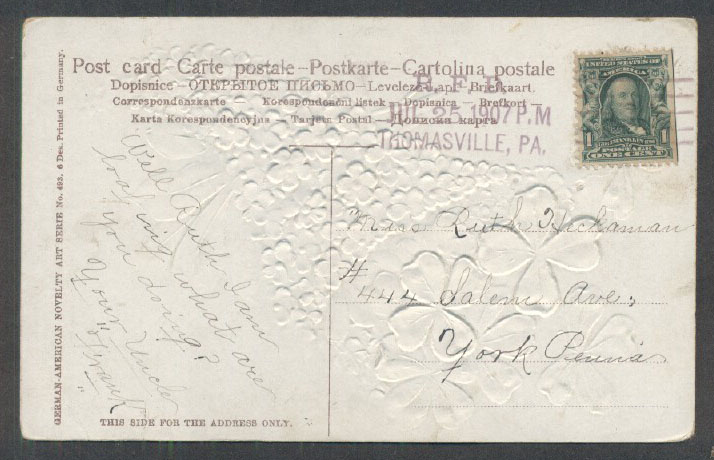 Post card – Carte postale – Postkarte – Cartolina postale
Dopisnice – ОТКРЫТОЕ ПИСЬМО – Levelező-Lap – Briefkaart
Correspondenzkarte – Korespondencni listek – Dopisnica – Brefkort –
Karta Korespondencyjna – Tarjeta Postal – Дописна карта
R.F.D.
25 1907 P.M
THOMASVILLE, PA.
UNITED STATES OF
AMERICA
FRANKLIN
1 POSTAGE 1
ONE CENT
GERMAN-AMERICAN NOVELTY ART SERIE No. 493. 6 Des. Printed in Germany.
Well Ruth I am
loafing what are
you doing?
Your Uncle
"Frank"
Miss Ruth Hickaman
# 444 Salem Ave,
York Penna
THIS SIDE FOR THE ADDRESS ONLY.